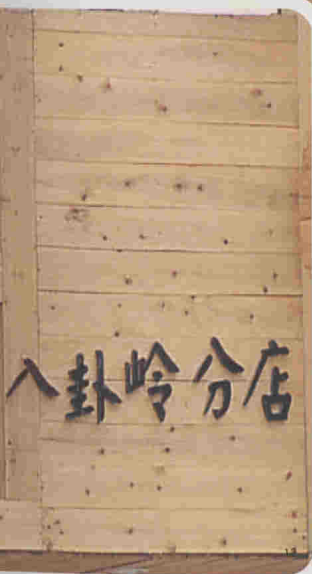 八卦岭分店